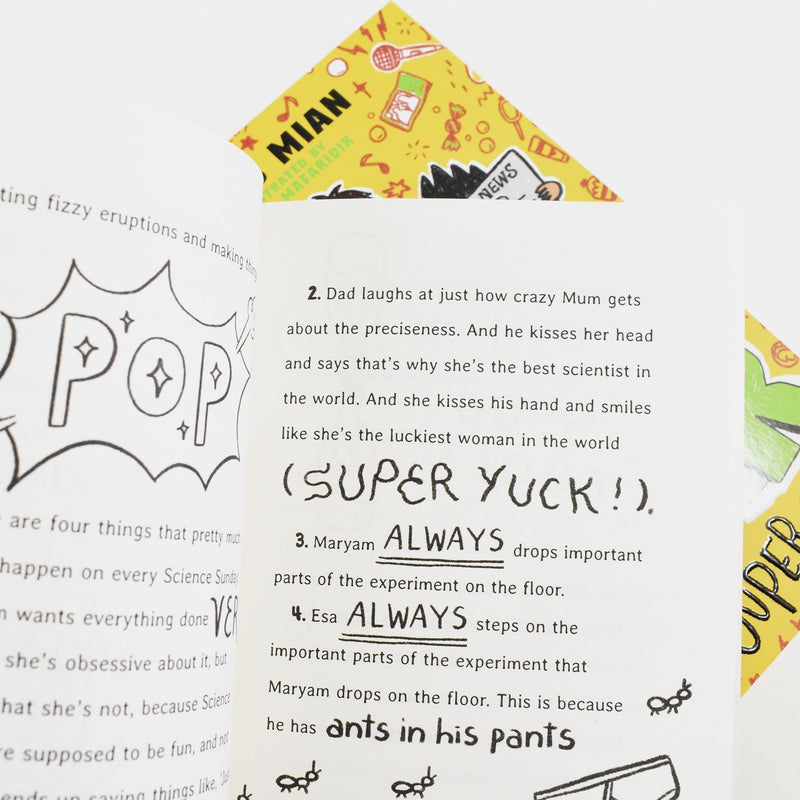 MIAN
ILLUSTRATED BY
MAFARIDIK
NEWS
SUPER
fizzy eruptions and making
POP
are four things that pretty much
happen on every Science Sunday
wants everything done VER
she's obsessive about it, but
she's not, because Science
supposed to be fun, and not
ends up saying things like, 'Just
2. Dad laughs at just how crazy Mum gets
about the preciseness. And he kisses her head
and says that's why she's the best scientist in
the world. And she kisses his hand and smiles
like she's the luckiest woman in the world
(SUPER YUCK!).
3. Maryam ALWAYS drops important
parts of the experiment on the floor.
4. Esa ALWAYS steps on the
important parts of the experiment that
Maryam drops on the floor. This is because
he has ants in his pants